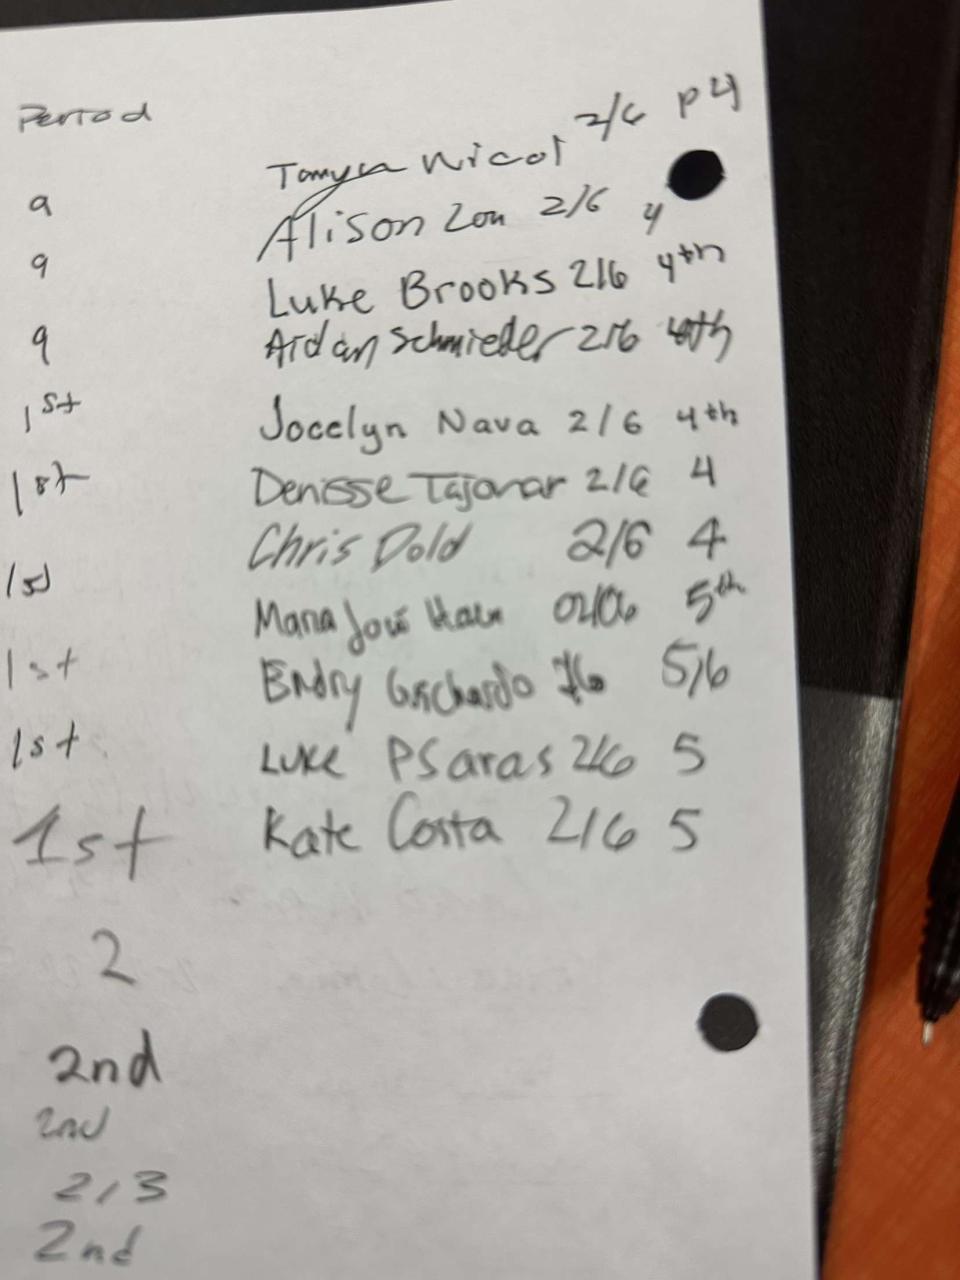 Period
9
9
9
1st
1st
1st
1st
1st
1st
2
2nd
2nd
2/3
2nd
Nicol 2/6 P4
Alison Zou 2/6 4
Luke Brooks 2/6 4th
Aidan Schmieder 2/6 4th
Jocelyn Nava 2/6 4th
Denisse 2/6 4
Chris Dold 2/6 4
5th
5/6
Luke Psaras 2/6 5
Kate Costa 2/6 5